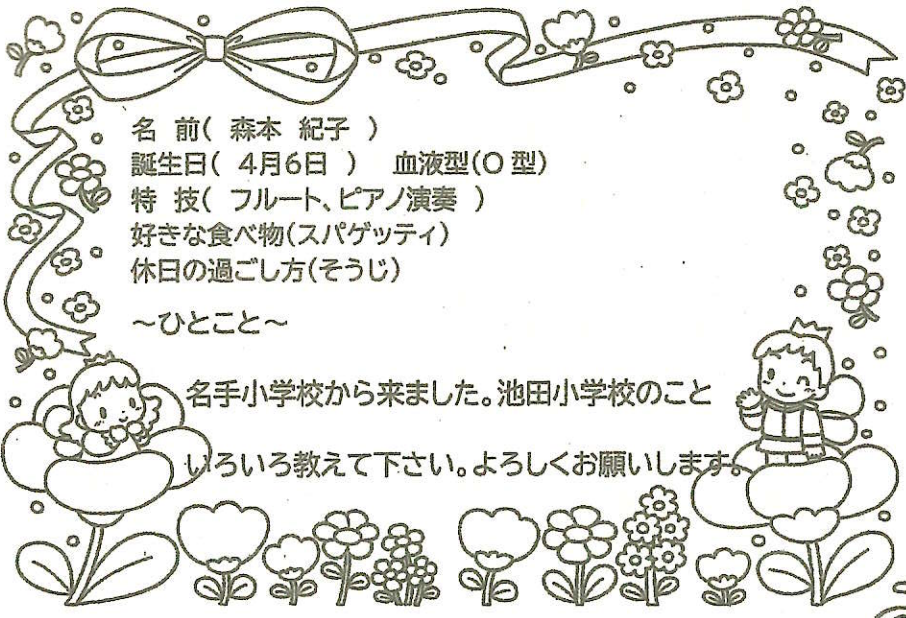 名 前( 森本 紀子 )
誕生日( 4月6日 ) 血液型(O 型)
特 技( フルート、ピアノ演奏 )
好きな食べ物(スパゲッティ)
休日の過ごし方(そうじ)
~ひとこと~
名手小学校から来ました。池田小学校のこと
いろいろ教えて下さい。よろしくお願いします。